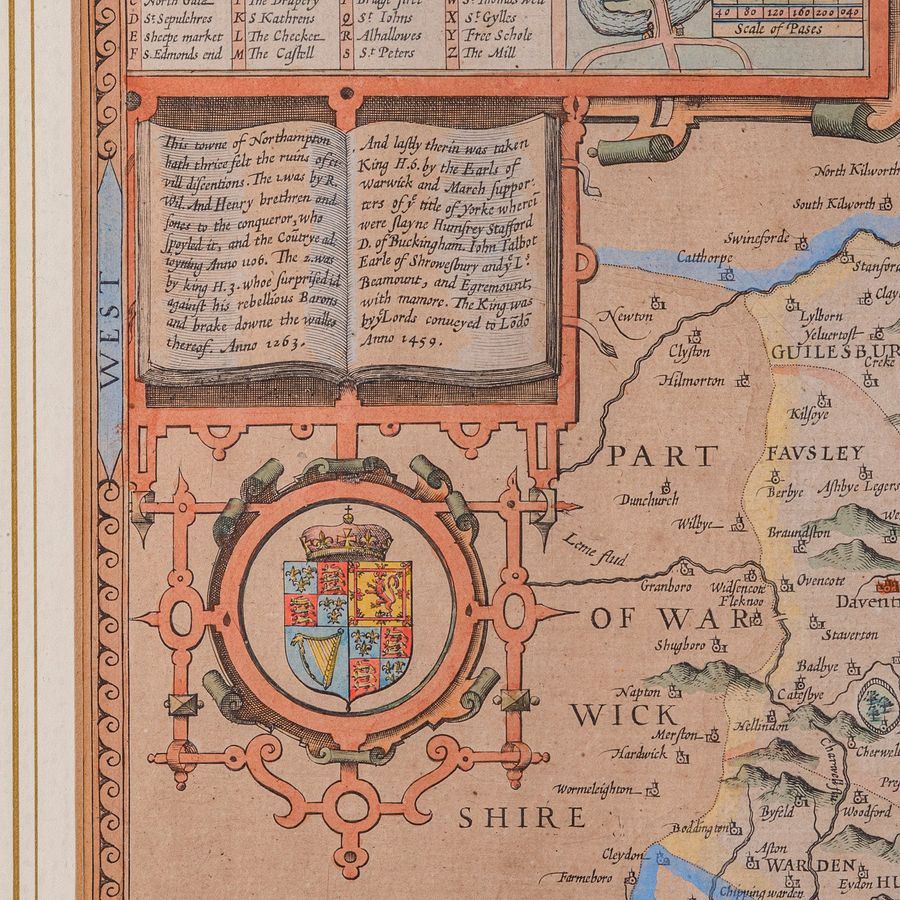 North Gate
The Drapery
D St Sepulchres K S Kathrens Q St Iohns X St Gylles
E sheepe market L The Checker R Alhallowes Y Free Schole
F S.Edmonds end M The Castell S St Peters Z The Mill
40 80 120 160 200 240
Scale of Pases
This towne of Northampton
hath thrice felt the ruins of ci-
vill discentions. The 1.was by R.
Wil. And Henry brethren and
sones to the conqueror, who
spoyled it, and the Coūtrye ad
ioyning Anno 1106. The 2.was
by king H.3. whoe surprised id
against his rebellious Barons
and brake downe the walles
thereof. Anno 1263.
And lastly therin was taken
King H.6. by the Earls of
Warwick and March suppor-
ters of ye title of Yorke wherei
were slayne Humfrey Stafford
D. of Buckingham. Iohn Talbot
Earle of Shrowesbury and ye Ls
Beamount, and Egremount,
with mamore. The King was
by ye Lords conueyed to Lōdō
Anno 1459.
WEST
North Kilworth
South Kilworth
Swineforde
Catthorpe
Stanford
Clay
Newton
Lylborn
Yelvertoft
Clyfton
GUILESBUR
Creke
Hilmorton
Kilsoye
PART
FAVSLEY
Berbye
Ashbye Legers
Dunchurch
Wilbye
Braundston
We
Leme flud
Granboro
Ovencote
Flcknoe
Davent
OF WAR
Staverton
Shugboro
Badbye
Napton
Catesbye
WICK
Hellindon
Merston
Hardwick
Charwell flu
Cherwell
Wormeleighton
Pre
Byfeld
Woodford
SHIRE
Boddington
Cleydon
Aston
WARDEN
Farmeboro
Eydon
HU
Chipping warden